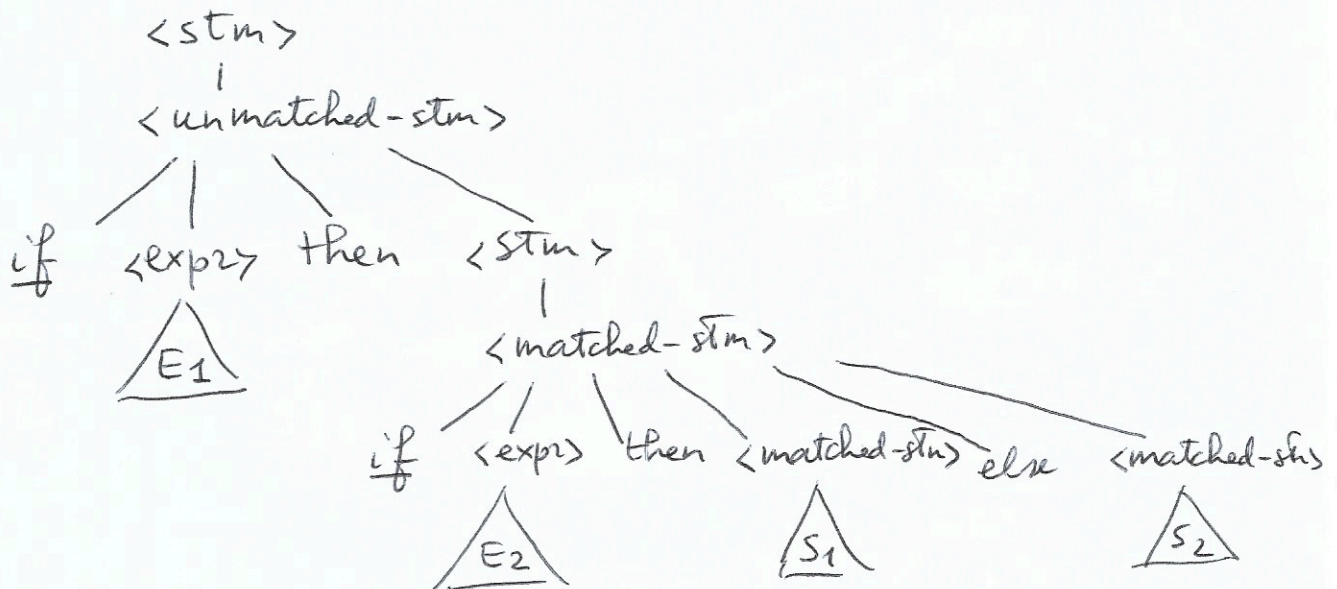 <stm>
<unmatched-stm>
if <expr> then <stm>
E1
<matched-stm>
if <expr> then <matched-stm> else <matched-stm>
E2 S1 S2